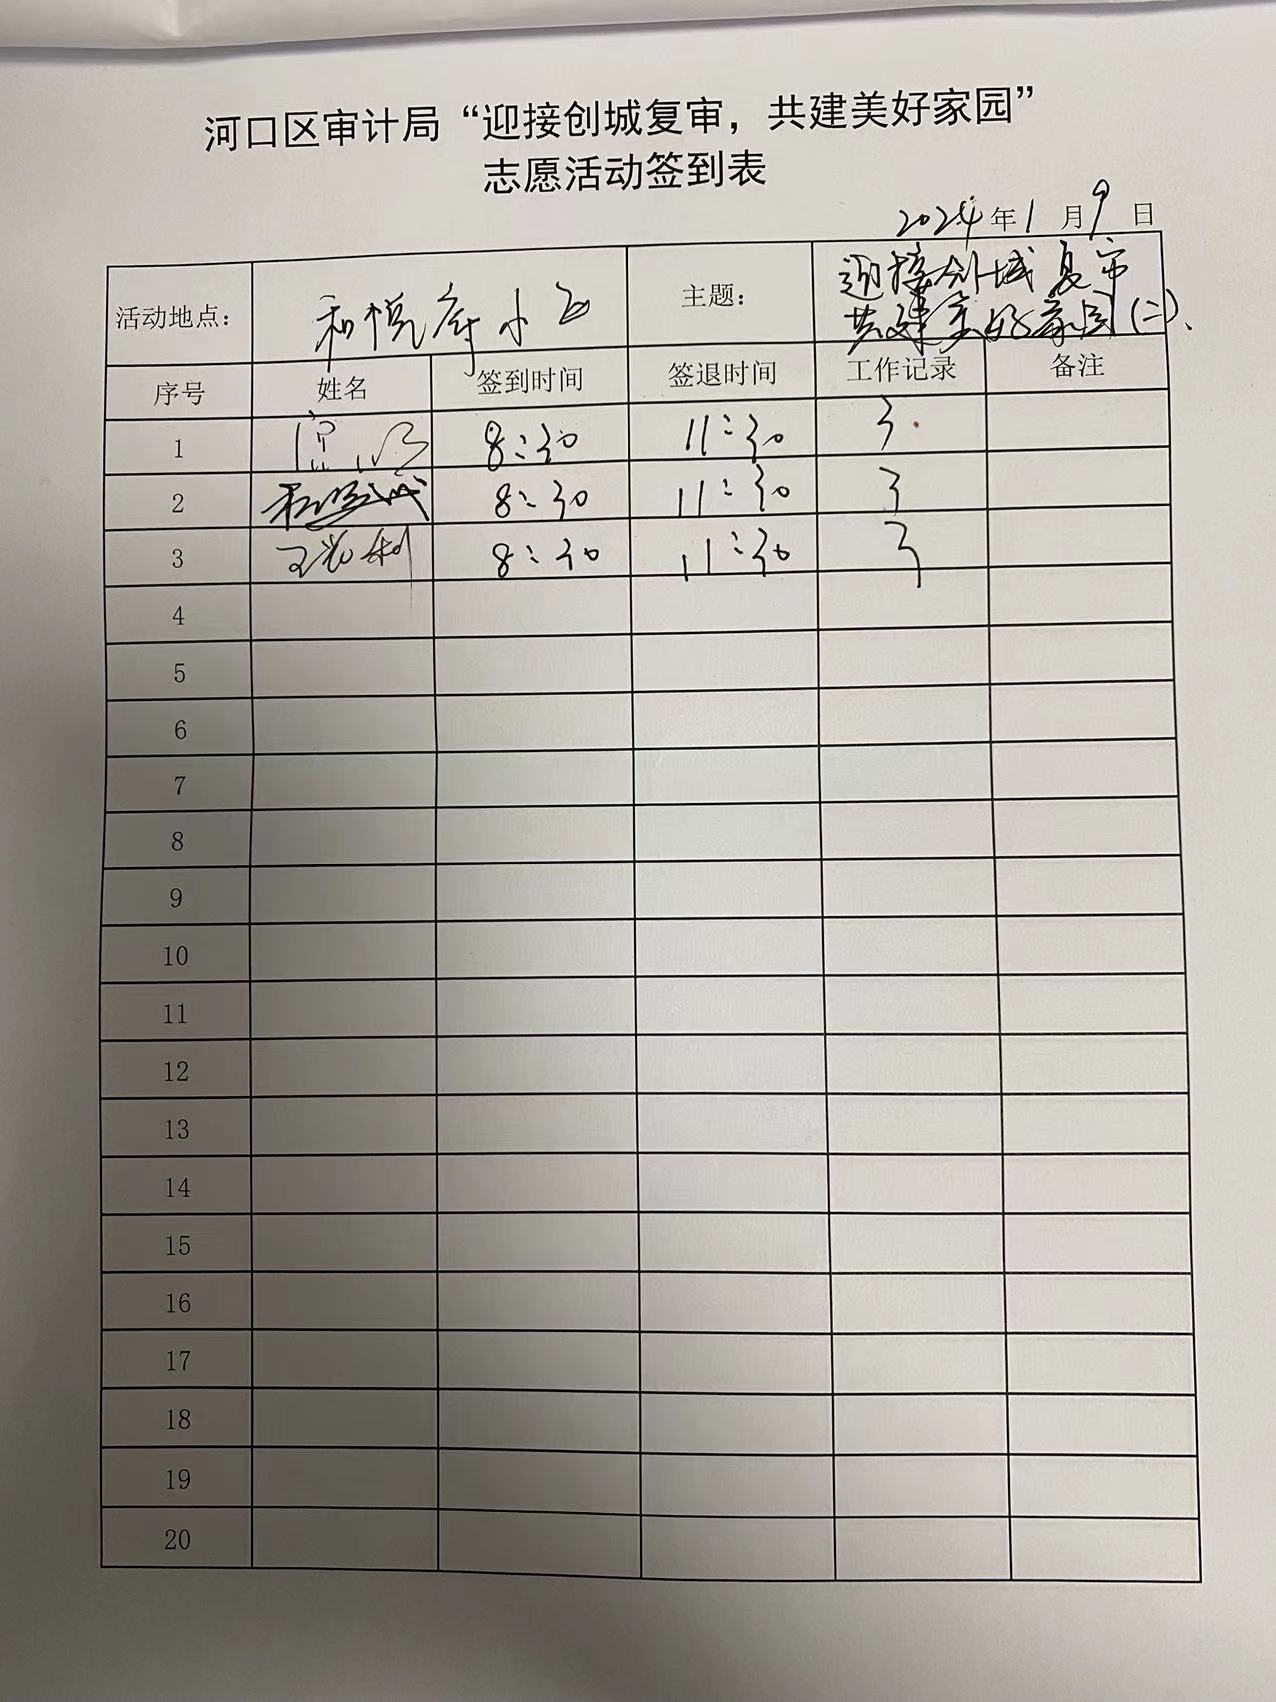 河口区审计局“迎接创城复审，共建美好家园”
志愿活动签到表
2024年1月9日
活动地点： 和悦府小区 主题： 迎接创城复审
共建美好家园(二)、
序号 姓名 签到时间 签退时间 工作记录 备注
1 8:30 11:30 3.
2 8:30 11:30 3
3 8:30 11:30 3
4
5
6
7
8
9
10
11
12
13
14
15
16
17
18
19
20